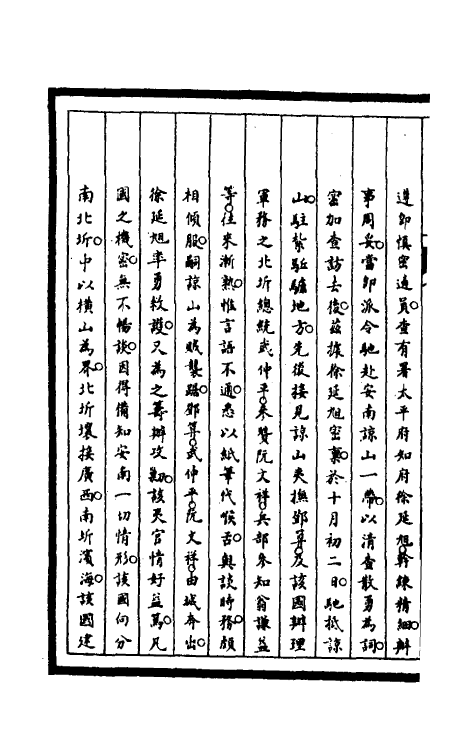 遵卽愼密遴員查有署太平府知府徐延旭幹練精細辦
事周妥當卽派令馳赴安南諒山一帶以清查散勇爲詞
密加查訪去後茲據徐延旭密稟於十月初二日馳抵諒
山駐紮驅驢地方先後接見諒山夷撫鄧算及該國辦理
軍務之北圻總統武仲平叅贊阮文祥兵部叅知翁謙益
等往來漸熟惟言語不通悉以紙筆代喉舌與談時務頗
相傾服嗣諒山爲賊襲踞鄧算武仲平阮文祥由城奔出
徐延旭率勇救護又爲之籌辦攻剿該夷官情好益篤凡
國之機密無不暢談因得備知安南一切情形該國向分
南北圻中以橫山爲界北圻壤接廣西南圻濱海該國建